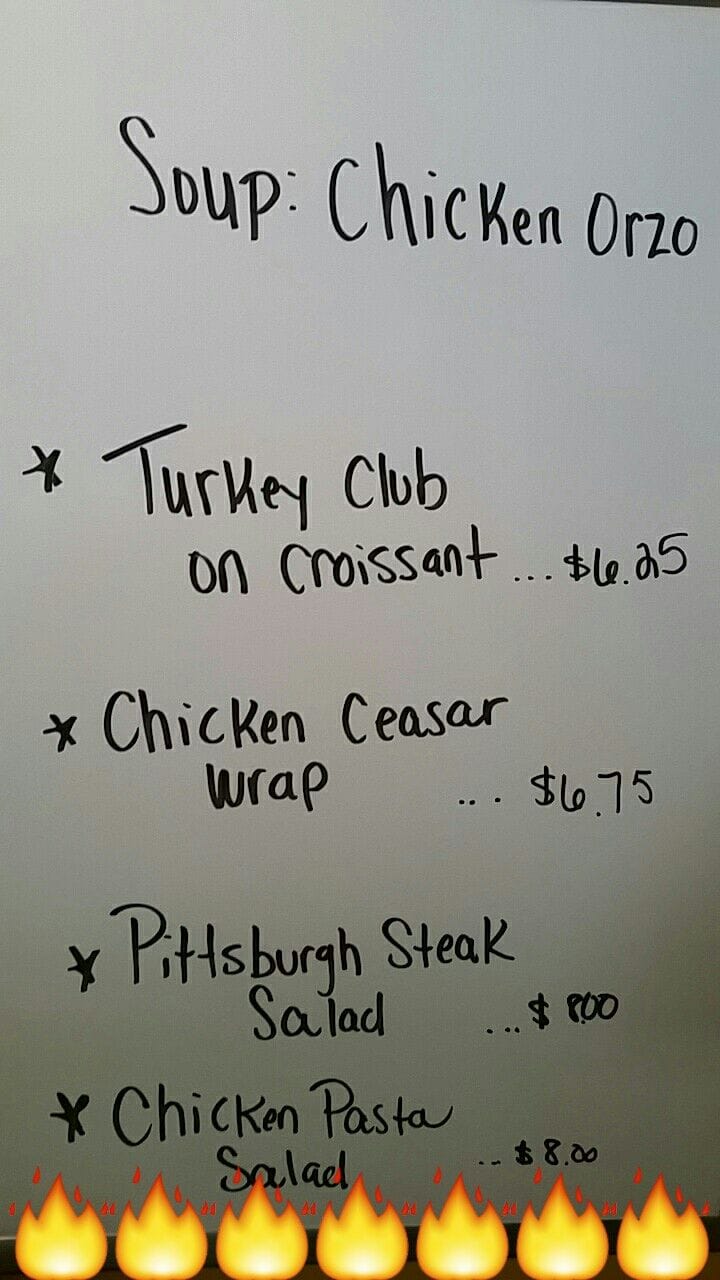 Soup: Chicken Orzo
* Turkey Club
on Croissant ... $6.25
* Chicken Ceasar
Wrap ... $6.75
* Pittsburgh Steak
Salad ... $ 8.00
* Chicken Pasta
Salad .. $ 8.00